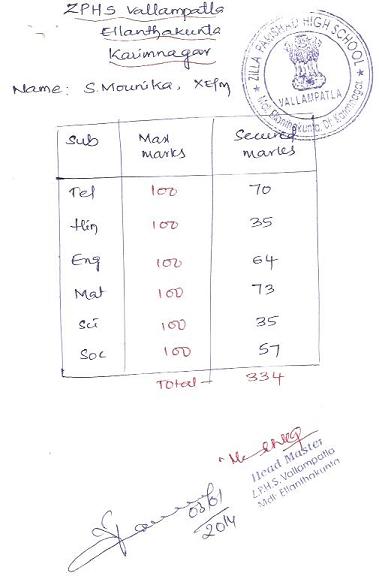 ZPHS Vallampatla
Ellanthakunta
Karimnagar
Name: S. Mounika, XE/m
ZILLA PARISHAD HIGH SCHOOL
VALLAMPATLA
Mdl. Ellanthakunta, Dt. Karimnagar
Sub Max marks Secured marks
Tel 100 70
Hin 100 35
Eng 100 64
Mat 100 73
Sci 100 35
Soc 100 57
Total - 334
Head Master
Z.P.H.S. Vallampatla
Mdl: Ellanthakunta
03/01
2014